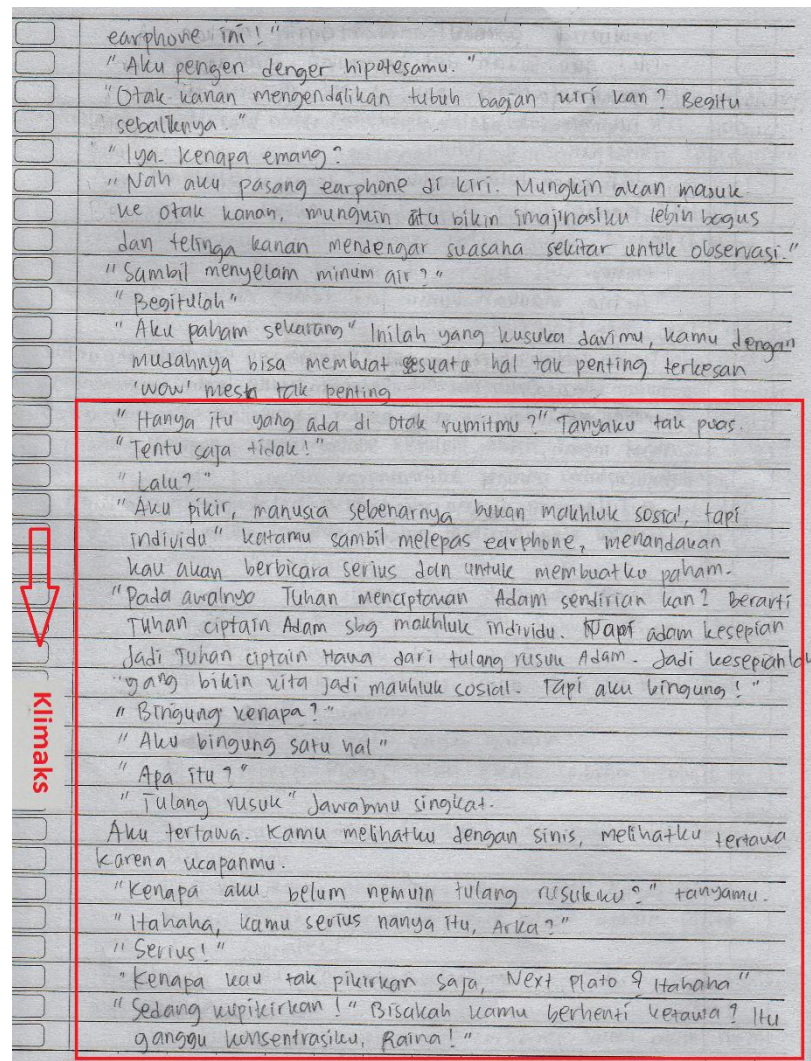 earphone ini!"
"Aku pengen denger hipotesamu."
"Otak kanan mengendalikan tubuh bagian kiri kan? Begitu
sebaliknya."
"Iya. Kenapa emang?
"Nah aku pasang earphone di kiri. Mungkin akan masuk
ke otak kanan, mungkin itu bikin imajinasiku lebih bagus
dan telinga kanan mendengar suasana sekitar untuk observasi."
"Sambil menyelam minum air?"
"Begitulah"
"Aku paham sekarang" Inilah yang kusuka darimu, kamu dengan
mudahnya bisa membuat sesuatu hal tak penting terkesan
'wow' meski tak penting
"Hanya itu yang ada di otak rumitmu?" Tanyaku tak puas.
"Tentu saja tidak!"
"Lalu?"
"Aku pikir, manusia sebenarnya bukan makhluk sosial, tapi
individu" katamu sambil melepas earphone, menandakan
kau akan berbicara serius dan untuk membuatku paham.
"Pada awalnya Tuhan menciptakan Adam sendirian kan? Berarti
Tuhan ciptain Adam sbg makhluk individu. Tapi adam kesepian
Jadi Tuhan ciptain Hawa dari tulang rusuk Adam. Jadi kesepian
"yang bikin kita jadi makhluk sosial. Tapi aku bingung!"
"Bingung kenapa?"
"Aku bingung satu hal"
"Apa itu?"
"Tulang rusuk" Jawabmu singkat.
Aku tertawa. Kamu melihatku dengan sinis, melihatku tertawa
karena ucapanmu.
"Kenapa aku belum nemuin tulang rusukku?" tanyamu.
"Hahaha, kamu serius nanya itu, Arka?"
"Serius!"
"Kenapa kau tak pikirkan saja, Next Plato? Hahaha"
"Sedang kupikirkan!" Bisakah kamu berhenti ketawa? Itu
ganggu konsentrasiku, Raina!"
Klimaks